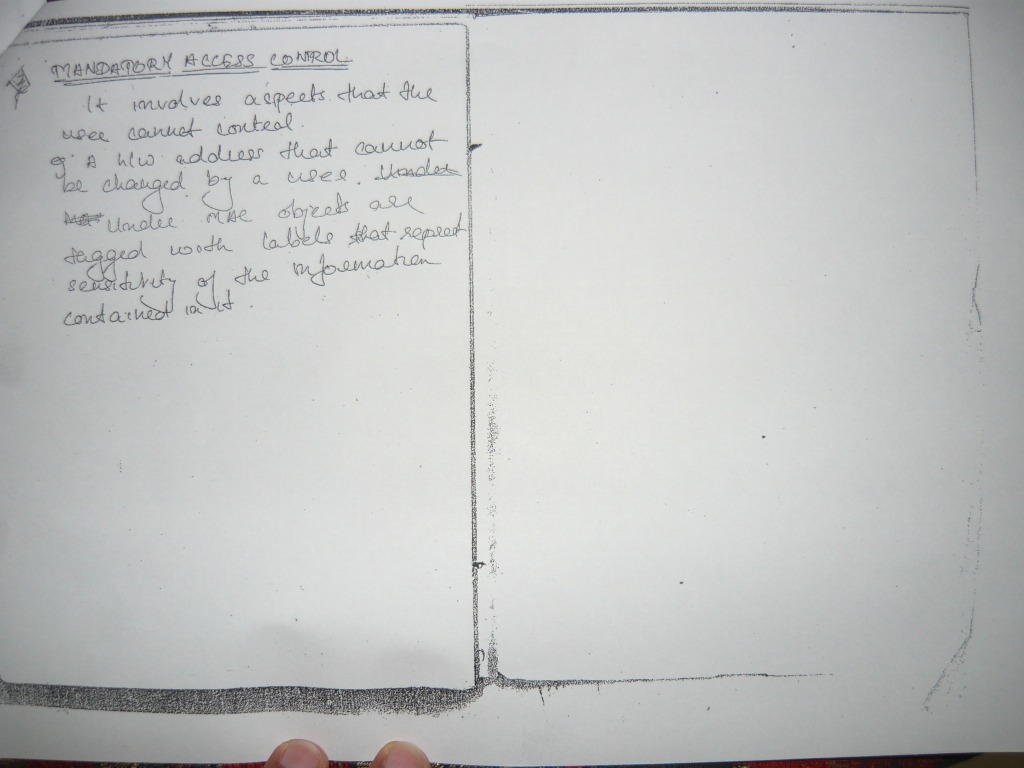 MANDATORY ACCESS CONTROL
It involves aspects that the
user cannot control.
eg. A h/w address that cannot
be changed by a user. Under
Under MAC objects are
tagged with labels that repsent
sensitivity of the information
contained in it.